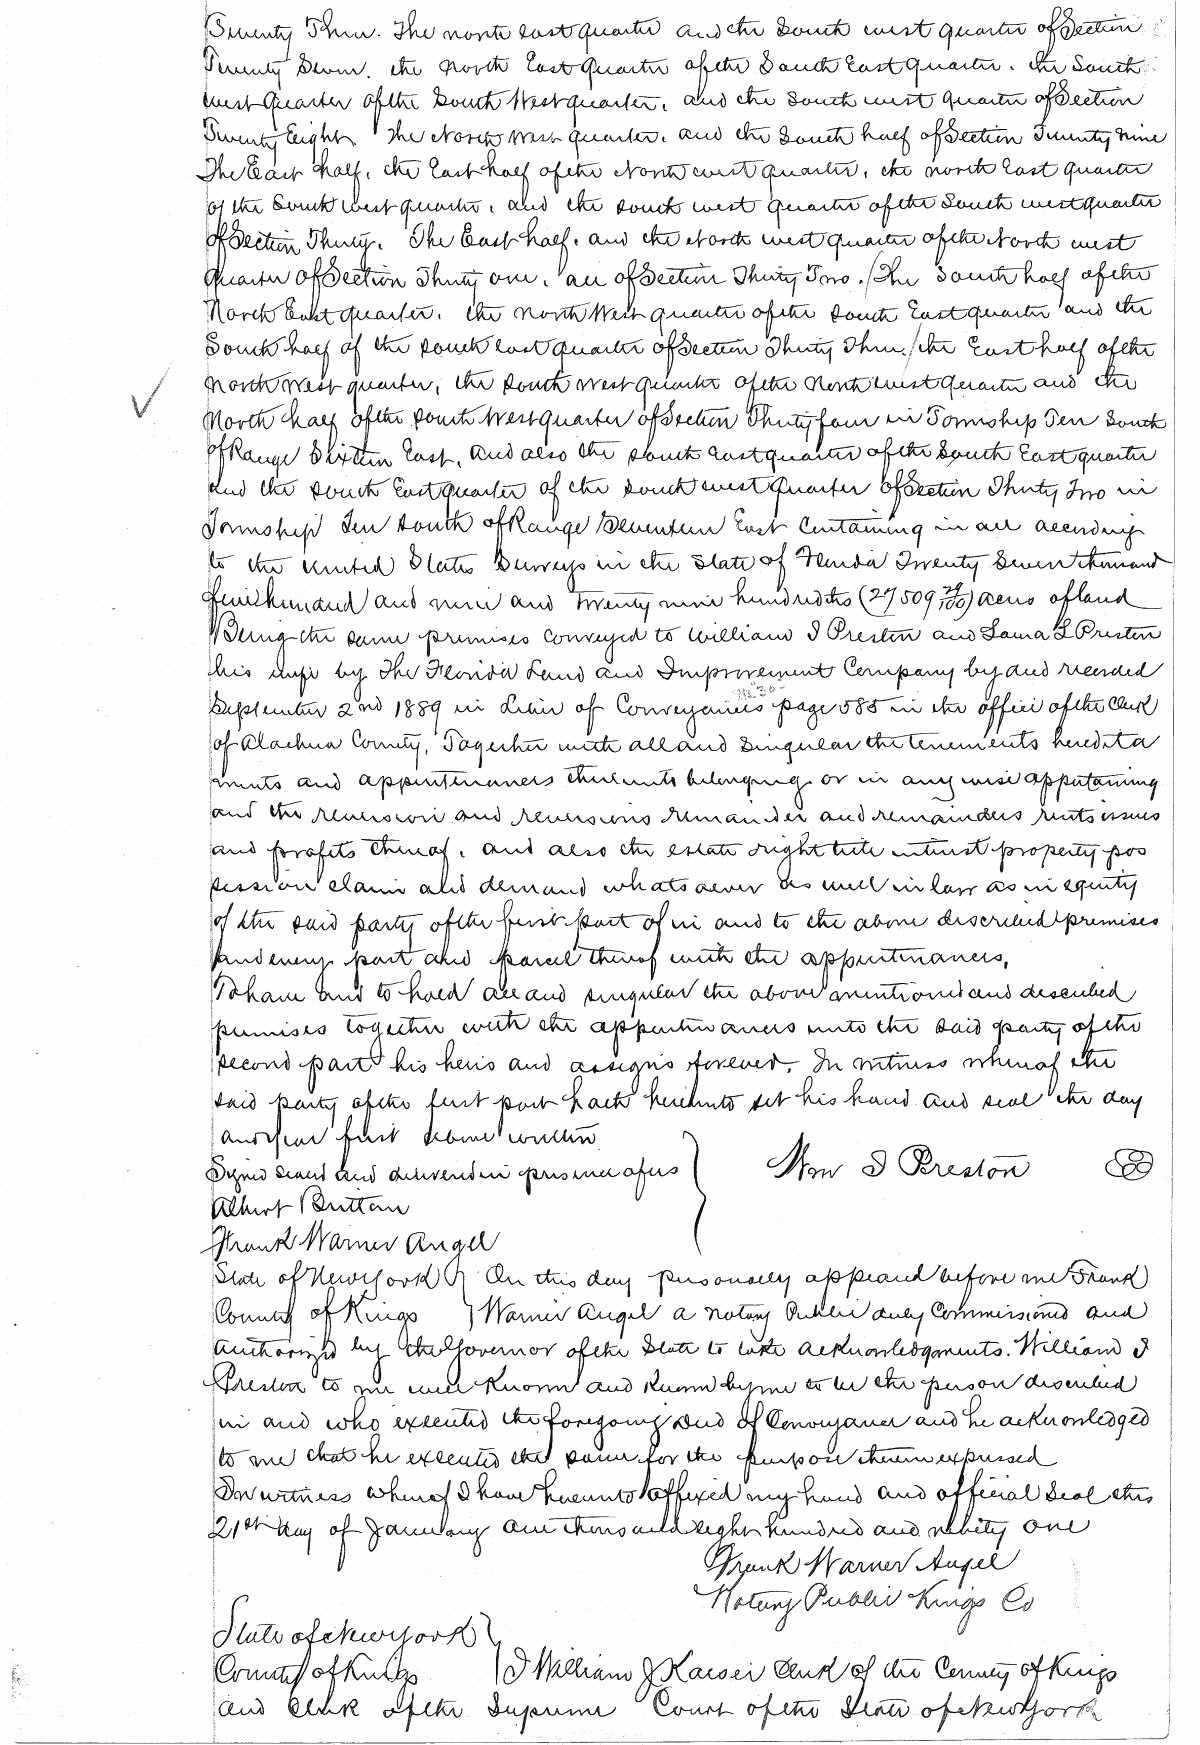 Twenty Three. The north east quarter and the South west quarter of Section
Twenty Seven. the North East quarter of the South East quarter. the South
west quarter of the South West quarter, and the South west quarter of Section
Twenty Eight The North West quarter. and the South half of Section Twenty nine
The East half, the East half of the North west quarter, the north East quarter
of the South west quarter, and the south west quarter of the South west quarter
of Section Thirty. The East half. and the North west quarter of the North west
quarter of Section Thirty one, all of Section Thirty Two. / The South half of the
North East quarter. the north West quarter of the South East quarter and the
South half of the south east quarter of Section Thirty Three / the East half of the
North West quarter, the South West quarter of the North west quarter and the
North half of the South West quarter of Section Thirty four in Township Ten South
of Range Sixteen East, and also the south East quarter of the South East quarter
and the South East quarter of the South west quarter of Section Thirty Two in
Township Ten South of Range Seventeen East Containing in all according
to the United States Surveys in the State of Florida Twenty Seven thousand
five hundred and nine and twenty nine hundredths (27509 29/100) acres of land
Being the same premises conveyed to William I Preston and Laura L Preston
his wife by The Florida Land and Improvement Company by deed recorded
September 2nd 1889 in Liber of Conveyances page 585 in the office of the Clerk
of Alachua County, Together with all and Singular the tenements heredita
ments and appurtenances thereunto belonging or in any wise appertaining
and the reversion and reversions remainder and remainders rents issues
and profits thereof. and also the estate right title interest property pos
session claim and demand whatsoever as well in law as in equity
of the said party of the first part of in and to the above described premises
and every part and parcel thereof with the appurtenances,
To have and to hold all and singular the above mentioned and described
premises together with the appurtenances unto the said party of the
second part his heirs and assigns forever. In witness whereof the
said party of the first part hath hereunto set his hand and seal the day
and year first above written
Signed sealed and delivered in presence of us Wm I Preston
Albert Britton
Frank Warner Angel
State of New York } On this day personally appeared before me Frank
County of Kings } Warner Angel a Notary Public duly Commissioned and
authorized by the Governor of the State to take acknowledgments. William I
Preston to me well Known and Known by me to be the person described
in and who executed the foregoing Deed of Conveyance and he acknowledged
to me that he executed the same for the purpose therein expressed
In witness whereof I have hereunto affixed my hand and official Seal this
21st day of January one thousand eight hundred and ninety one
Frank Warner Angel
Notary Public Kings Co
State of New York }
County of Kings } I William J Kaiser Clerk of the County of Kings
and Clerk of the Supreme Court of the State of New York